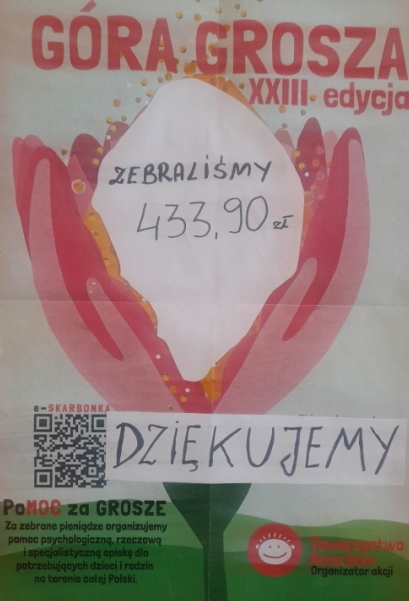 GÓRA GROSZA
XXIII edycja
ZEBRALIŚMY
433,90 zł
e-SKARBONKA
DZIĘKUJEMY
PoMOC za GROSZE
Za zebrane pieniądze organizujemy
pomoc psychologiczną, rzeczową
i specjalistyczną opiekę dla
potrzebujących dzieci i rodzin
na terenie całej Polski.
Towarzystwo
Nasz Dom
Organizator akcji